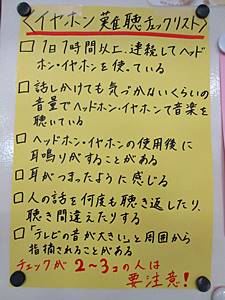 <イヤホン難聴チェックリスト>
□ 1日1時間以上、連続してヘッド
ホン・イヤホンを使っている
□ 話しかけても気づかないくらいの
音量でヘッドホン・イヤホンで音楽を
聴いている
□ ヘッドホン・イヤホンの使用後に
耳鳴りがすることがある
□ 耳がつまったように感じる
□ 人の話を何度も聴き返したり、
聴き間違えたりする
□ 「テレビの音が大きい」と周囲から
指摘されることがある
チェックが2~3コの人は
要注意!